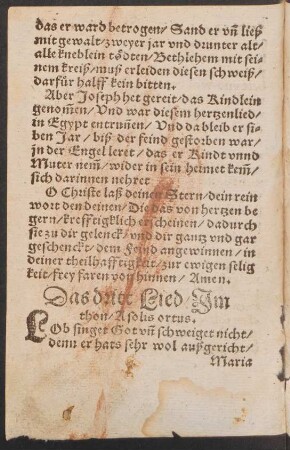 das er ward betrogen/ Sand er vñ ließ
mit gewalt/ zweyer jar vnd drunter alt/
alle kneblein tödten/ Bethlehem mit sei-
nem kreiß/ muß erleiden diesen schweiß/
darfür halff kein bitten.
Aber Joseph het gereit/ das Kindlein
genom̃en/ Vnd war diesem hertzenleid/
in Egypt entrunẽn/ Vnd da bleib er si-
ben Jar/ biß der feind gestorben war/
jn der Engel leret/ das er Kindt vnnd
Muter nem̃/ wider in sein heimet kem̃/
sich darinnen nehret.
O Christe laß deinen Stern/ dein rein
wort den deinen/ Die das von hertzen be
gern/ krefftigklich erscheinen/ dadurch
sie zu dir gelenck/ vnd dir gantz vnd gar
geschenckt/ dem Feind angewinnen/ in
deiner theilhafftigkeit/ zur ewigen selig
keit/ frey faren von hinnen/ Amen.
Das dritt Lied/ Im
thon/ A solis ortus.
LOb singet Got vñ schweiget nicht/
denn er hats sehr wol außgericht/
Maria